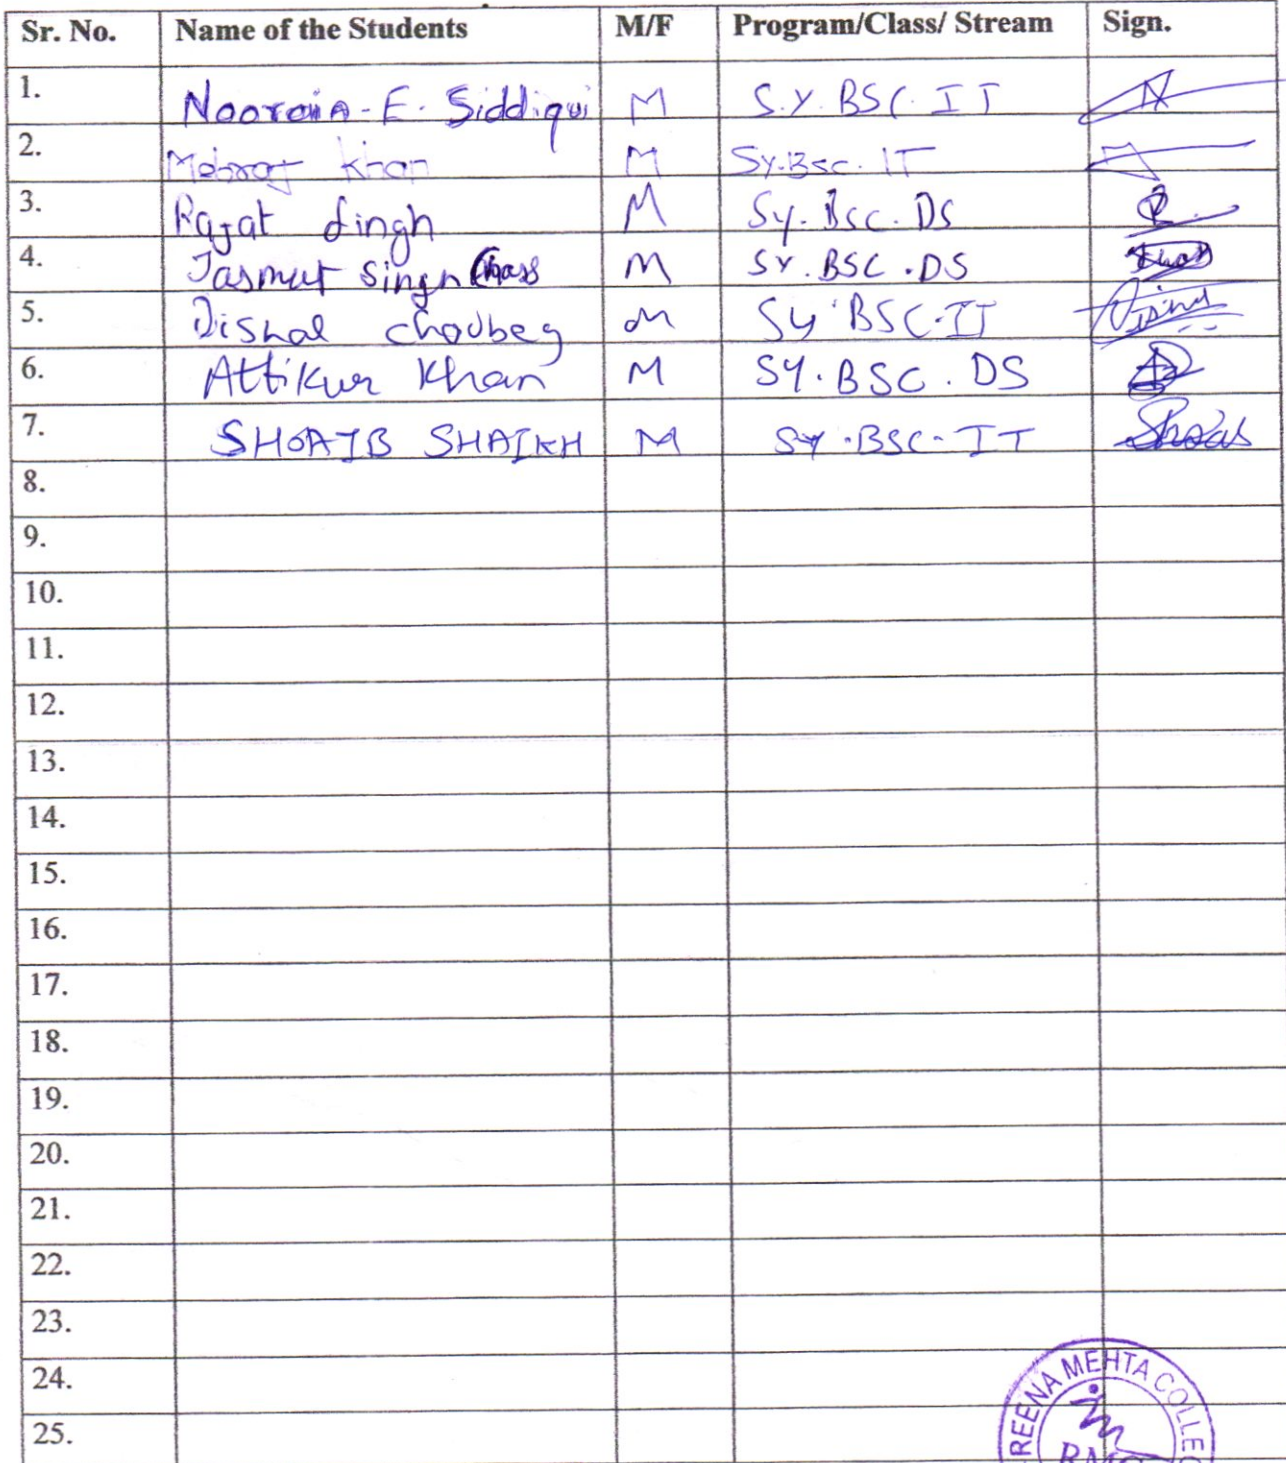 Sr. No. Name of the Students M/F Program/Class/ Stream Sign.
1. Noorain-E. Siddiqui M S.Y. BSC. IT
2. Mehraj Khan M Sy.Bsc. IT
3. Rajat Singh M Sy. Bsc. DS
4. Jasmut Singh M SY. BSC. DS
5. Vishal Choubey M Sy BSC.IT
6. Attikur Khan M SY. BSC. DS
7. SHOAIB SHAIKH M SY.BSC.IT Shoaib
8.
9.
10.
11.
12.
13.
14.
15.
16.
17.
18.
19.
20.
21.
22.
23.
24.
25.
REENA MEHTA COLLEG
RMC